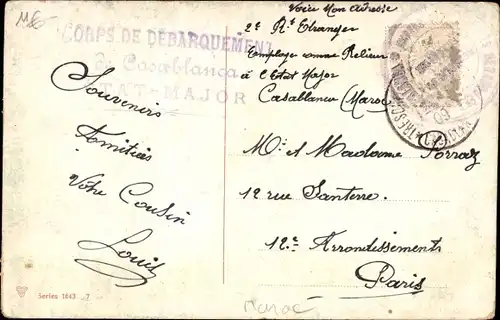 CORPS DE DÉBARQUEMENT
de Casablanca
ÉTAT-MAJOR
Souvenirs
Amitiés
Votre Cousin
Louis
Series 1643
Voici Mon Adresse
2e Rt Etranger
Employé comme Relieur
à l'Etat Major
Casablanca (Maroc)
Mr et Madame Porraz
12 rue Santerre
12e Arrondissement
Paris
Maroc